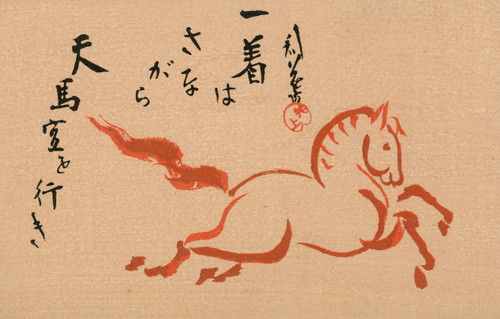 一着は
さながら
天馬空を行き